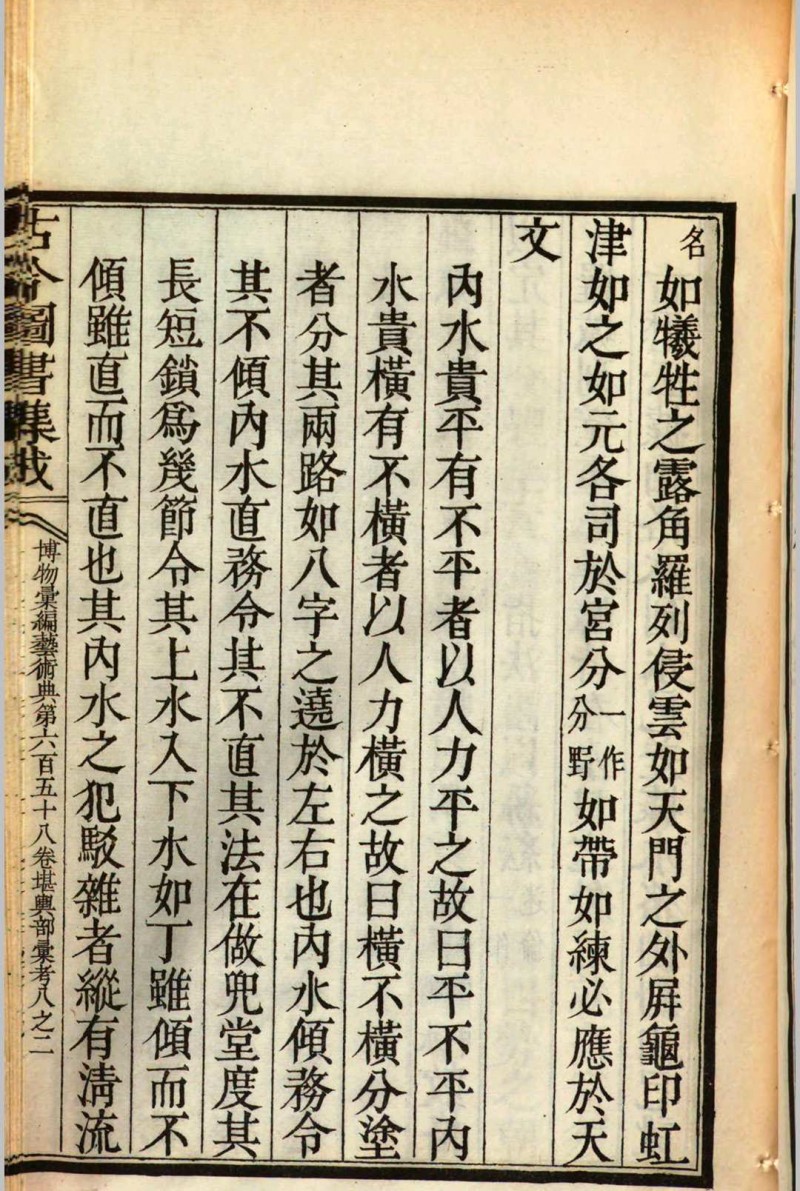 名如犧牲之露角羅列侵雲如天門之外屏龜印虹
津如之如元各司於宮分一作分野如帶如練必應於天
文
內水貴平有不平者以人力平之故曰平不平內
水貴橫有不橫者以人力橫之故曰橫不橫分塗
者分其兩路如八字之遶於左右也內水傾務令
其不傾內水直務令其不直其法在做兜堂度其
長短鎖爲幾節令其上水入下水如丁雖傾而不
傾雖直而不直也其內水之犯駁雜者縱有淸流
古今圖書集成
博物彙編藝術典第六百五十八卷堪輿部彙考八之二